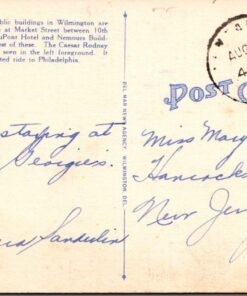 blic buildings in Wilmington are
e at Market Street between 10th
uPont Hotel and Nemours Build-
out of these. The Caesar Rodney
seen in the left foreground. It
ted ride to Philadelphia.
DEL MAR NEWS AGENCY, WILMINGTON, DEL.
POST C
AUG
staying at
Georgies.
Sanderlin
Miss Mary
Hancock
New Jer